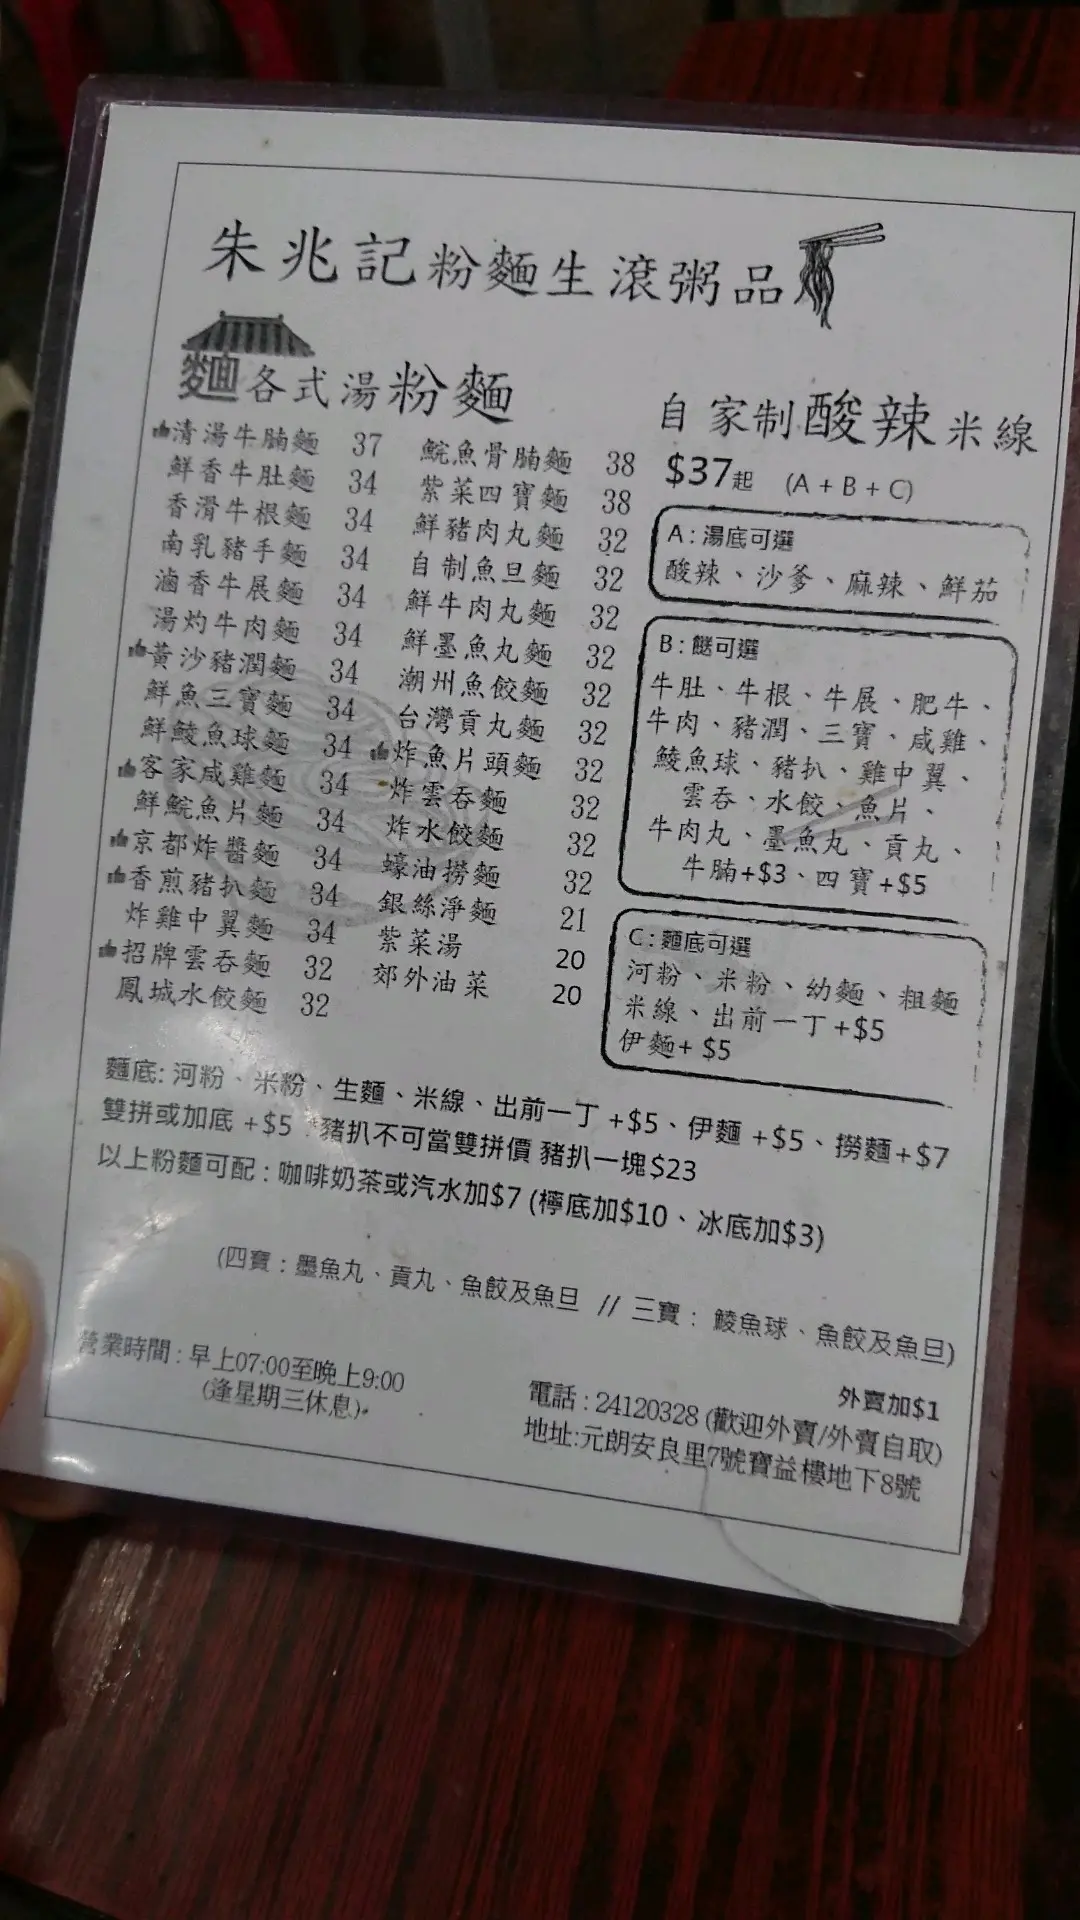 朱兆記粉麵生滾粥品
麵 各式湯粉麵
清湯牛腩麵 37
鮮香牛肚麵 34
香滑牛根麵 34
南乳豬手麵 34
滷香牛展麵 34
湯灼牛肉麵 34
黃沙豬潤麵 34
鮮魚三寶麵 34
鮮鯪魚球麵 34
客家咸雞麵 34
鮮鯇魚片麵 34
京都炸醬麵 34
香煎豬扒麵 34
炸雞中翼麵 34
招牌雲吞麵 32
鳳城水餃麵 32
鯇魚骨腩麵 38
紫菜四寶麵 38
鮮豬肉丸麵 32
自制魚旦麵 32
鮮牛肉丸麵 32
鮮墨魚丸麵 32
潮州魚餃麵 32
台灣貢丸麵 32
炸魚片頭麵 32
炸雲吞麵 32
炸水餃麵 32
蠔油撈麵 32
銀絲淨麵 21
紫菜湯 20
郊外油菜 20
自家制酸辣米線
$37起 (A+B+C)
A:湯底可選
酸辣、沙爹、麻辣、鮮茄
B:餸可選
牛肚、牛根、牛展、肥牛、
牛肉、豬潤、三寶、咸雞、
鯪魚球、豬扒、雞中翼、
雲吞、水餃、魚片、
牛肉丸、墨魚丸、貢丸、
牛腩+$3、四寶+$5
C:麵底可選
河粉、米粉、幼麵、粗麵
米線、出前一丁+$5
伊麵+ $5
麵底: 河粉、米粉、生麵、米線、出前一丁 +$5、伊麵 +$5、撈麵+$7
雙拼或加底 +$5 豬扒不可當雙拼價 豬扒一塊$23
以上粉麵可配：咖啡奶茶或汽水加$7 (檸底加$10、冰底加$3)
(四寶：墨魚丸、貢丸、魚餃及魚旦 // 三寶： 鯪魚球、魚餃及魚旦)
營業時間：早上07:00至晚上9:00
(逢星期三休息)
外賣加$1
電話：24120328 (歡迎外賣/外賣自取)
地址:元朗安良里7號寶益樓地下8號